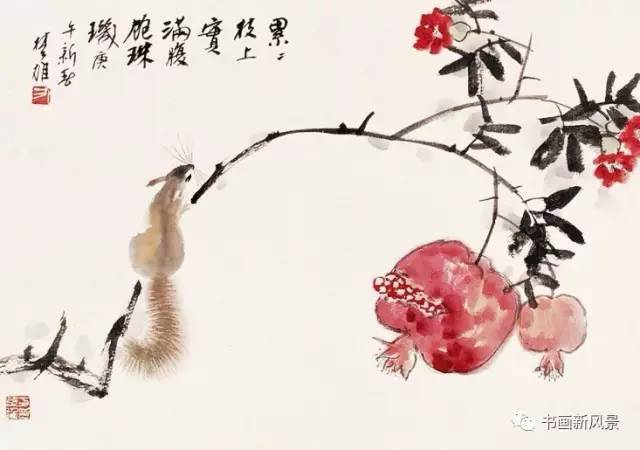 累〻
枝上
實
滿腹
飽珠
璣庚
午新春
楚雄
书画新风景